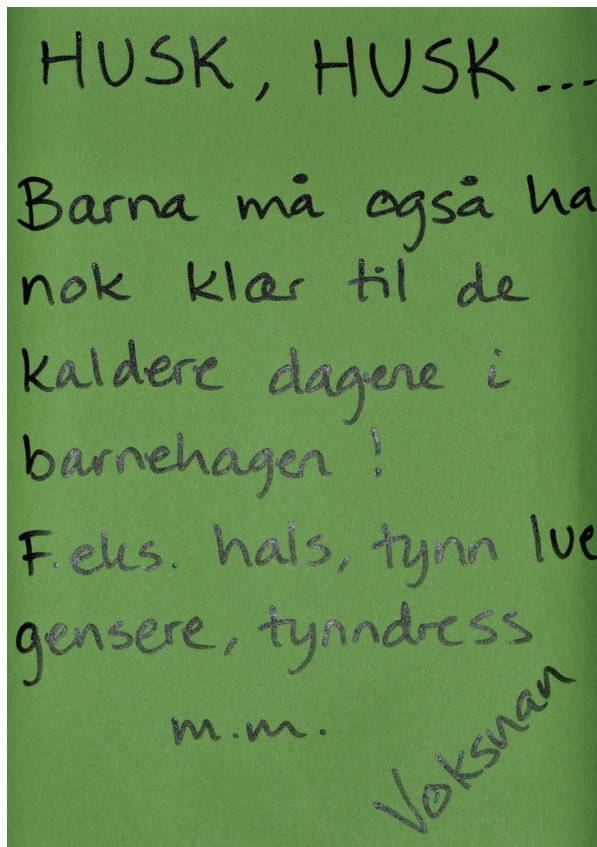 HUSK, HUSK...
Barna må også ha
nok klær til de
kaldere dagene i
barnehagen!
F.eks. hals, tynn lue
gensere, tynndress
m.m.
Voksnan